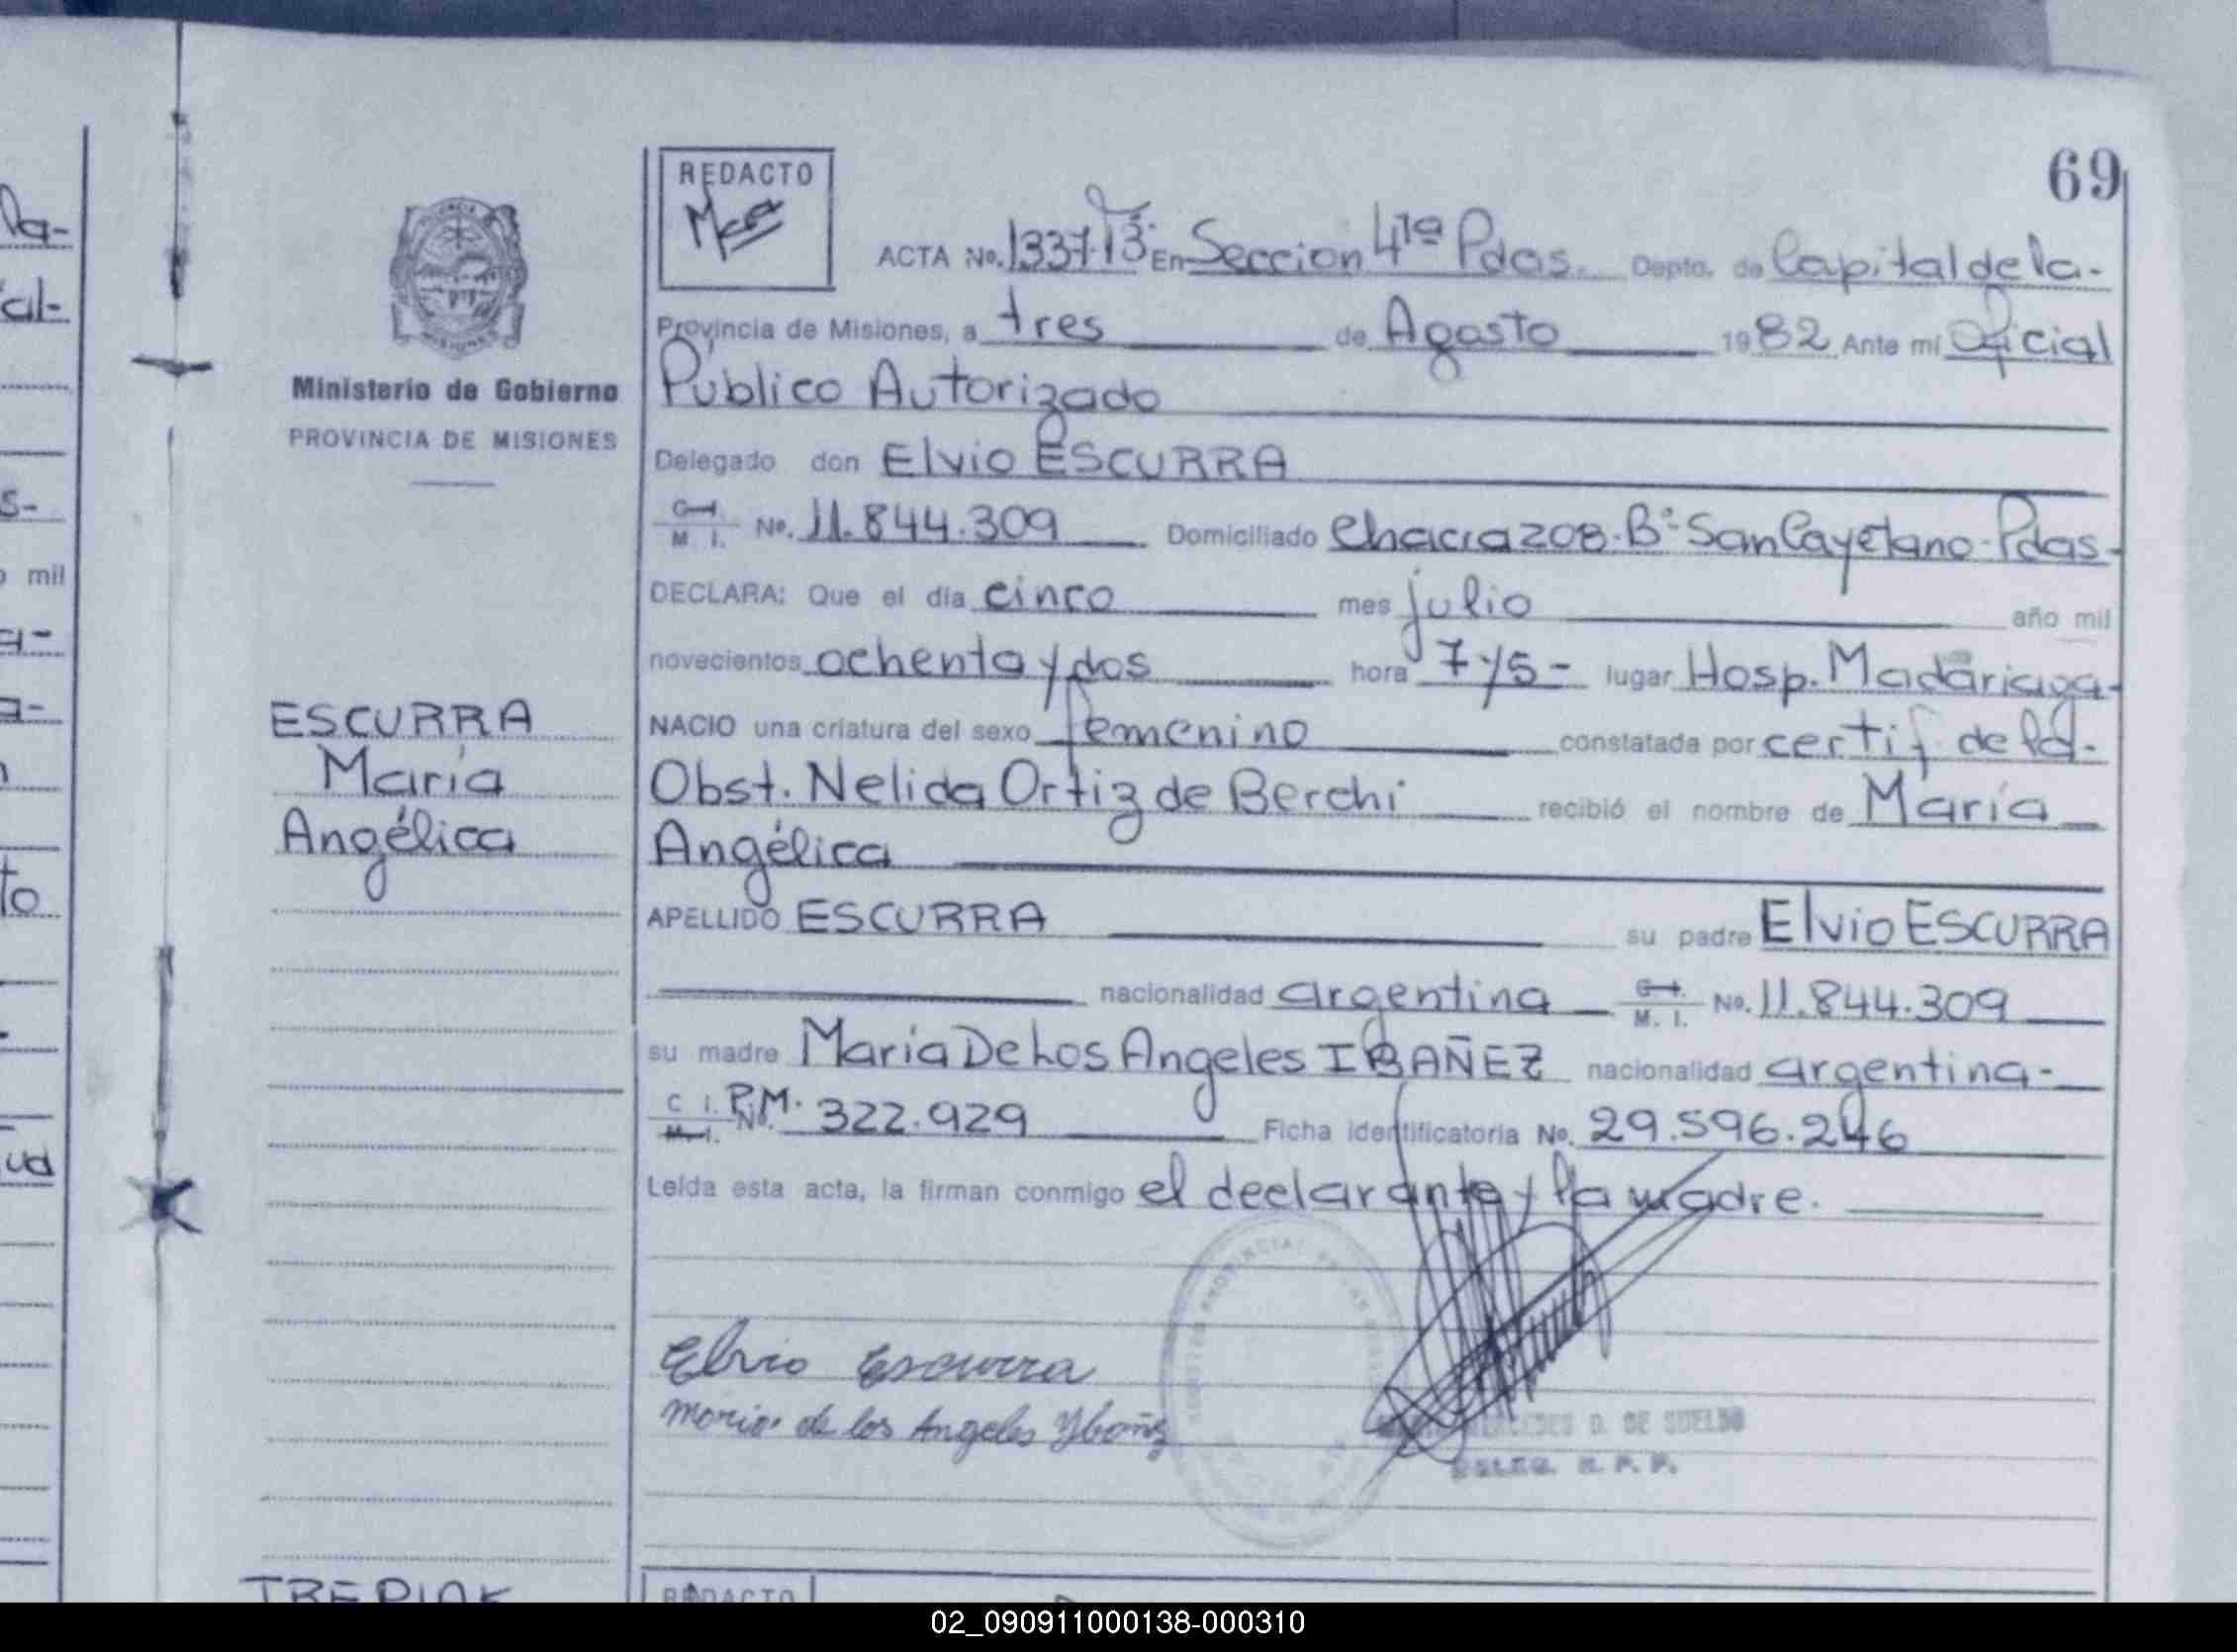 69
REDACTO
ACTA No. 1337 T3: En Seccion 4ta Pdas. Depto. de Capital de la-
Provincia de Misiones, a tres de Agosto 1982 Ante mí Oficial
Público Autorizado
Delegado don Elvio ESCURRA
C. I. M. I. No. 11.844.309 Domiciliado Chacra 208. Bº San Cayetano - Pdas-
DECLARA: Que el día cinco mes julio año mil
novecientos ochenta y dos hora 7 y 5 - lugar Hosp. Madariaga-
NACIO una criatura del sexo femenino constatada por certif. de la-
Obst. Nelida Ortiz de Berchi recibió el nombre de María
Angélica
APELLIDO ESCURRA su padre Elvio ESCURRA
nacionalidad argentina C. I. M. I. No. 11.844.309
su madre María De Los Angeles IBAÑEZ nacionalidad argentina-
C. I. M. I. P.M. No. 322.929 Ficha identificatoria No. 29.596.246
Leída esta acta, la firman conmigo el declarante y la madre.
Elvio Escurra
Maria de los Angeles Ybañez
MERCEDES D. DE SUELDO
DELEG. R. P. P.
Ministerio de Gobierno
PROVINCIA DE MISIONES
ESCURRA
María
Angélica
REDACTO
la-
al-
s-
mil
a-
a-
to
ud
02_090911000138-000310